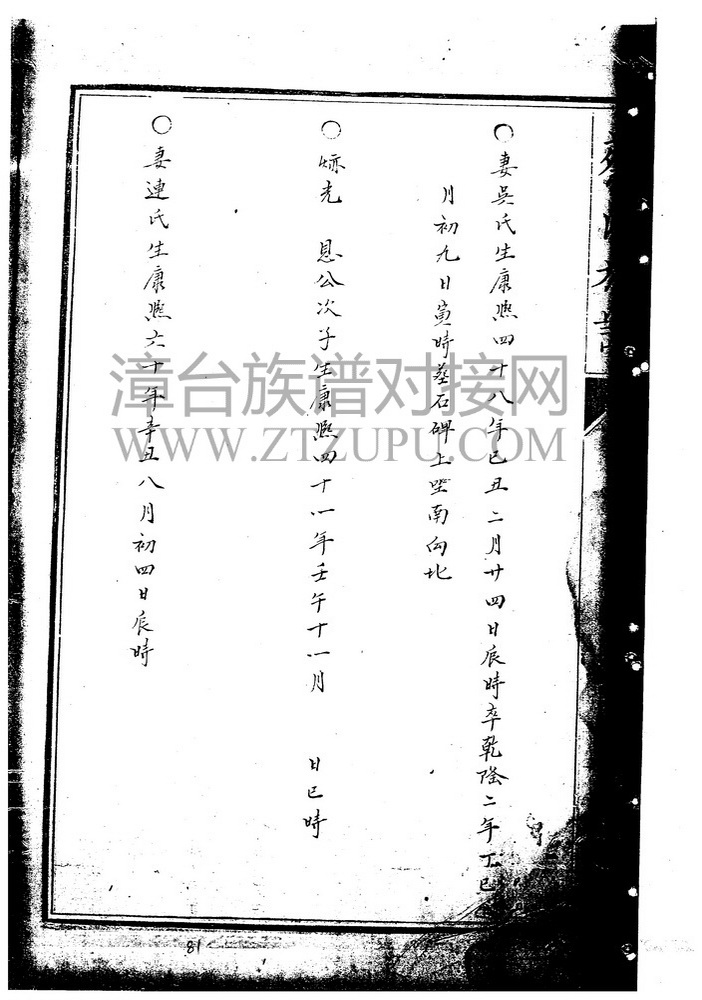 ○妻吳氏生康熙四十八年己丑二月廿四日辰時卒乾隆二年丁巳
月初九日寅時葬石碑上坐南向北
○炳光 恩公次子生康熙四十一年壬午十一月 日巳時
○妻連氏生康熙六十年辛丑八月初四日辰時
漳台族谱对接网
WWW.ZTZUPU.COM
81